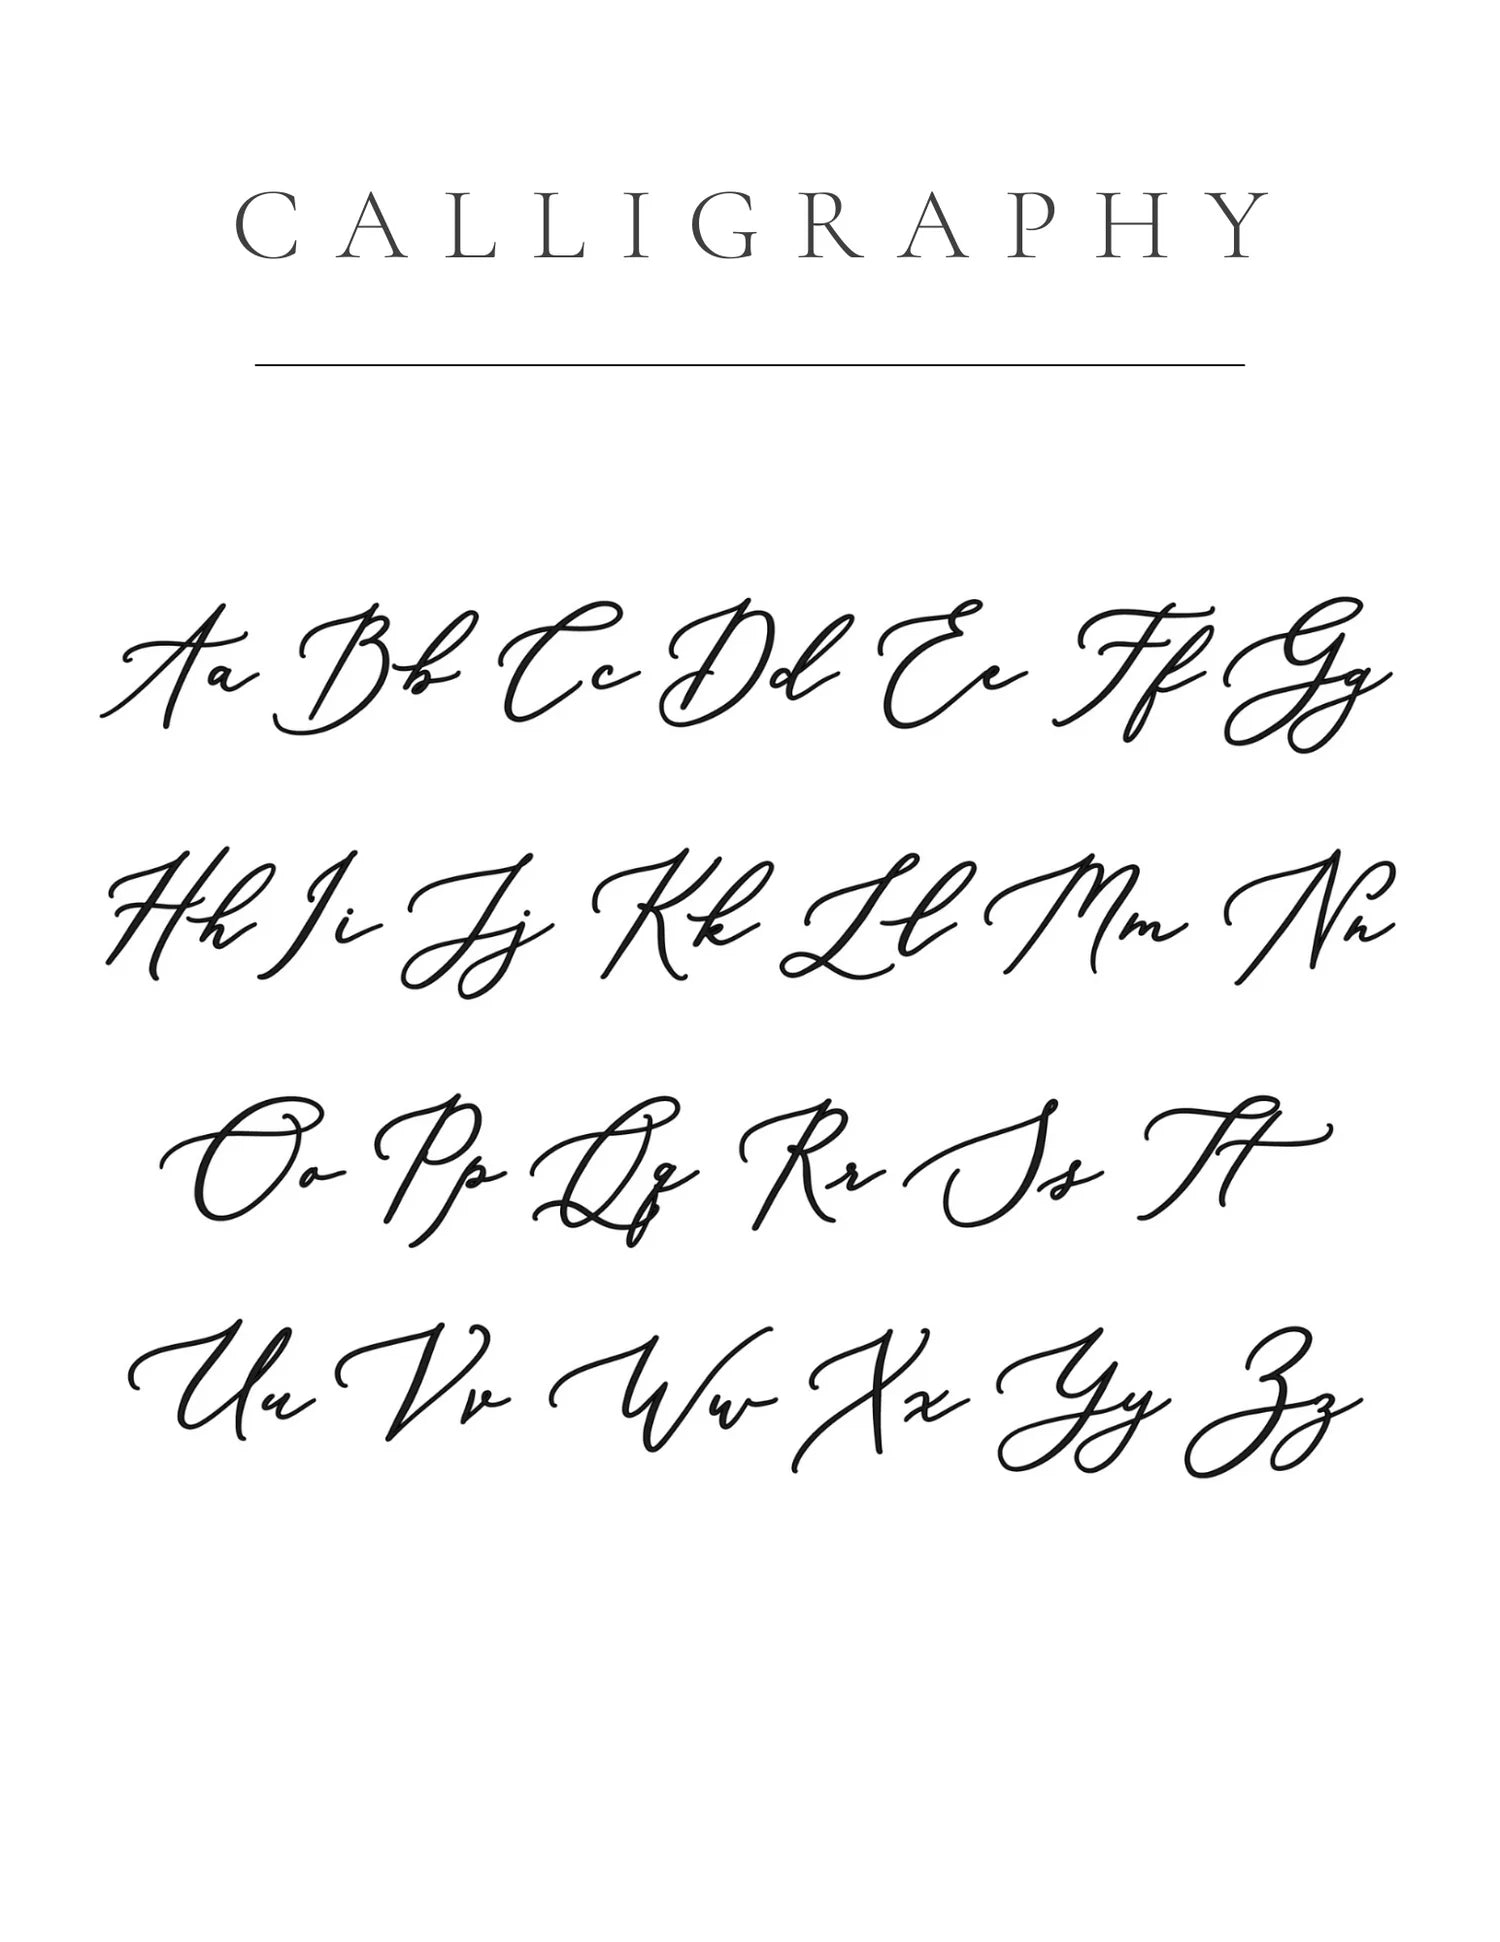 CALLIGRAPHY
Aa Bb Cc Dd Ee Ff Gg
Hh Ii Jj Kk Ll Mm Nn
Oo Pp Qq Rr Ss Tt
Uu Vv Ww Xx Yy Zz